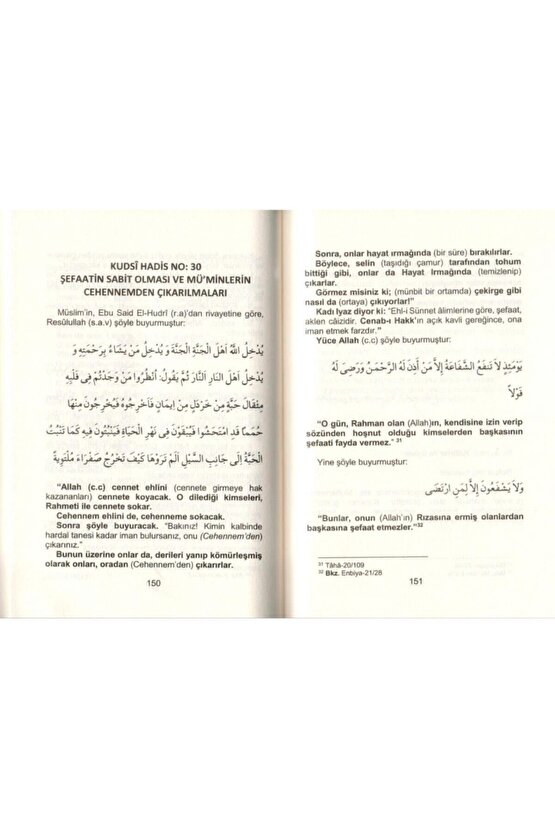 KUDSÎ HADİS NO: 30
ŞEFAATİN SABİT OLMASI VE MÜ'MİNLERİN
CEHENNEMDEN ÇIKARILMALARI
Müslim'in, Ebu Said El-Hudrî (r.a)'dan rivayetine göre,
Resûlullah (s.a.v) şöyle buyurmuştur:
يُدْخِلُ اللّٰهُ اَهْلَ الْجَنَّةِ الْجَنَّةَ وَ يُدْخِلُ مَنْ يَشَاءُ بِرَحْمَتِهِ وَ
يُدْخِلُ اَهْلَ النَّارِ النَّارَ ثُمَّ يَقُولُ: اُنْظُرُوا مَنْ وَجَدْتُمْ فِى قَلْبِهِ
مِثْقَالَ حَبَّةٍ مِنْ خَرْدَلٍ مِنْ اِيمَانٍ فَاَخْرِجُوهُ فَيُخْرِجُونَ مِنْهَا
حُمَماً قَدِ امْتَحَشُوا فَيُلْقَوْنَ فِى نَهْرِ الْحَيَاةِ فَيَنْبُتُونَ فِيهِ كَمَا تَنْبُتُ
الْحَبَّةُ اِلَى جَانِبِ السَّيْلِ اَلَمْ تَرَوْهَا كَيْفَ تَخْرُجُ صَفْرَاءَ مُلْتَوِيَةً
"Allah (c.c) cennet ehlini (cennete girmeye hak
kazananları) cennete koyacak. O dilediği kimseleri,
Rahmeti ile cennete sokar.
Cehennem ehlini de, cehenneme sokacak.
Sonra şöyle buyuracak. "Bakınız! Kimin kalbinde
hardal tanesi kadar iman bulursanız, onu (Cehennem'den)
çıkarınız."
Bunun üzerine onlar da, derileri yanıp kömürleşmiş
olarak onları, oradan (Cehennem'den) çıkarırlar.
150
Sonra, onlar hayat ırmağında (bir süre) bırakılırlar.
Böylece, selin (taşıdığı çamur) tarafından tohum
bittiği gibi, onlar da Hayat Irmağında (temizlenip)
çıkarlar.
Görmez misiniz ki; (münbit bir ortamda) çekirge gibi
nasıl da (ortaya) çıkıyorlar!"
Kadı Iyaz diyor ki: "Ehl-i Sünnet âlimlerine göre, şefaat,
aklen câizidir. Cenab-ı Hakk'ın açık kavli gereğince, ona
iman etmek farzdır."
Yüce Allah (c.c) şöyle buyurmuştur:
يَوْمَئِذٍ لَا تَنْفَعُ الشَّفَاعَةُ اِلَّا مَنْ اَذِنَ لَهُ الرَّحْمٰنُ وَرَضِىَ لَهُ
قَوْلاً
"O gün, Rahman olan (Allah)ın, kendisine izin verip
sözünden hoşnut olduğu kimselerden başkasının
şefaati fayda vermez." 31
Yine şöyle buyurmuştur:
وَلَا يَشْفَعُونَ اِلَّا لِمَنِ ارْتَضَى
"Bunlar, onun (Allah'ın) Rızasına ermiş olanlardan
başkasına şefaat etmezler."32
31 Tâhâ-20/109
32 Bkz. Enbiya-21/28
151